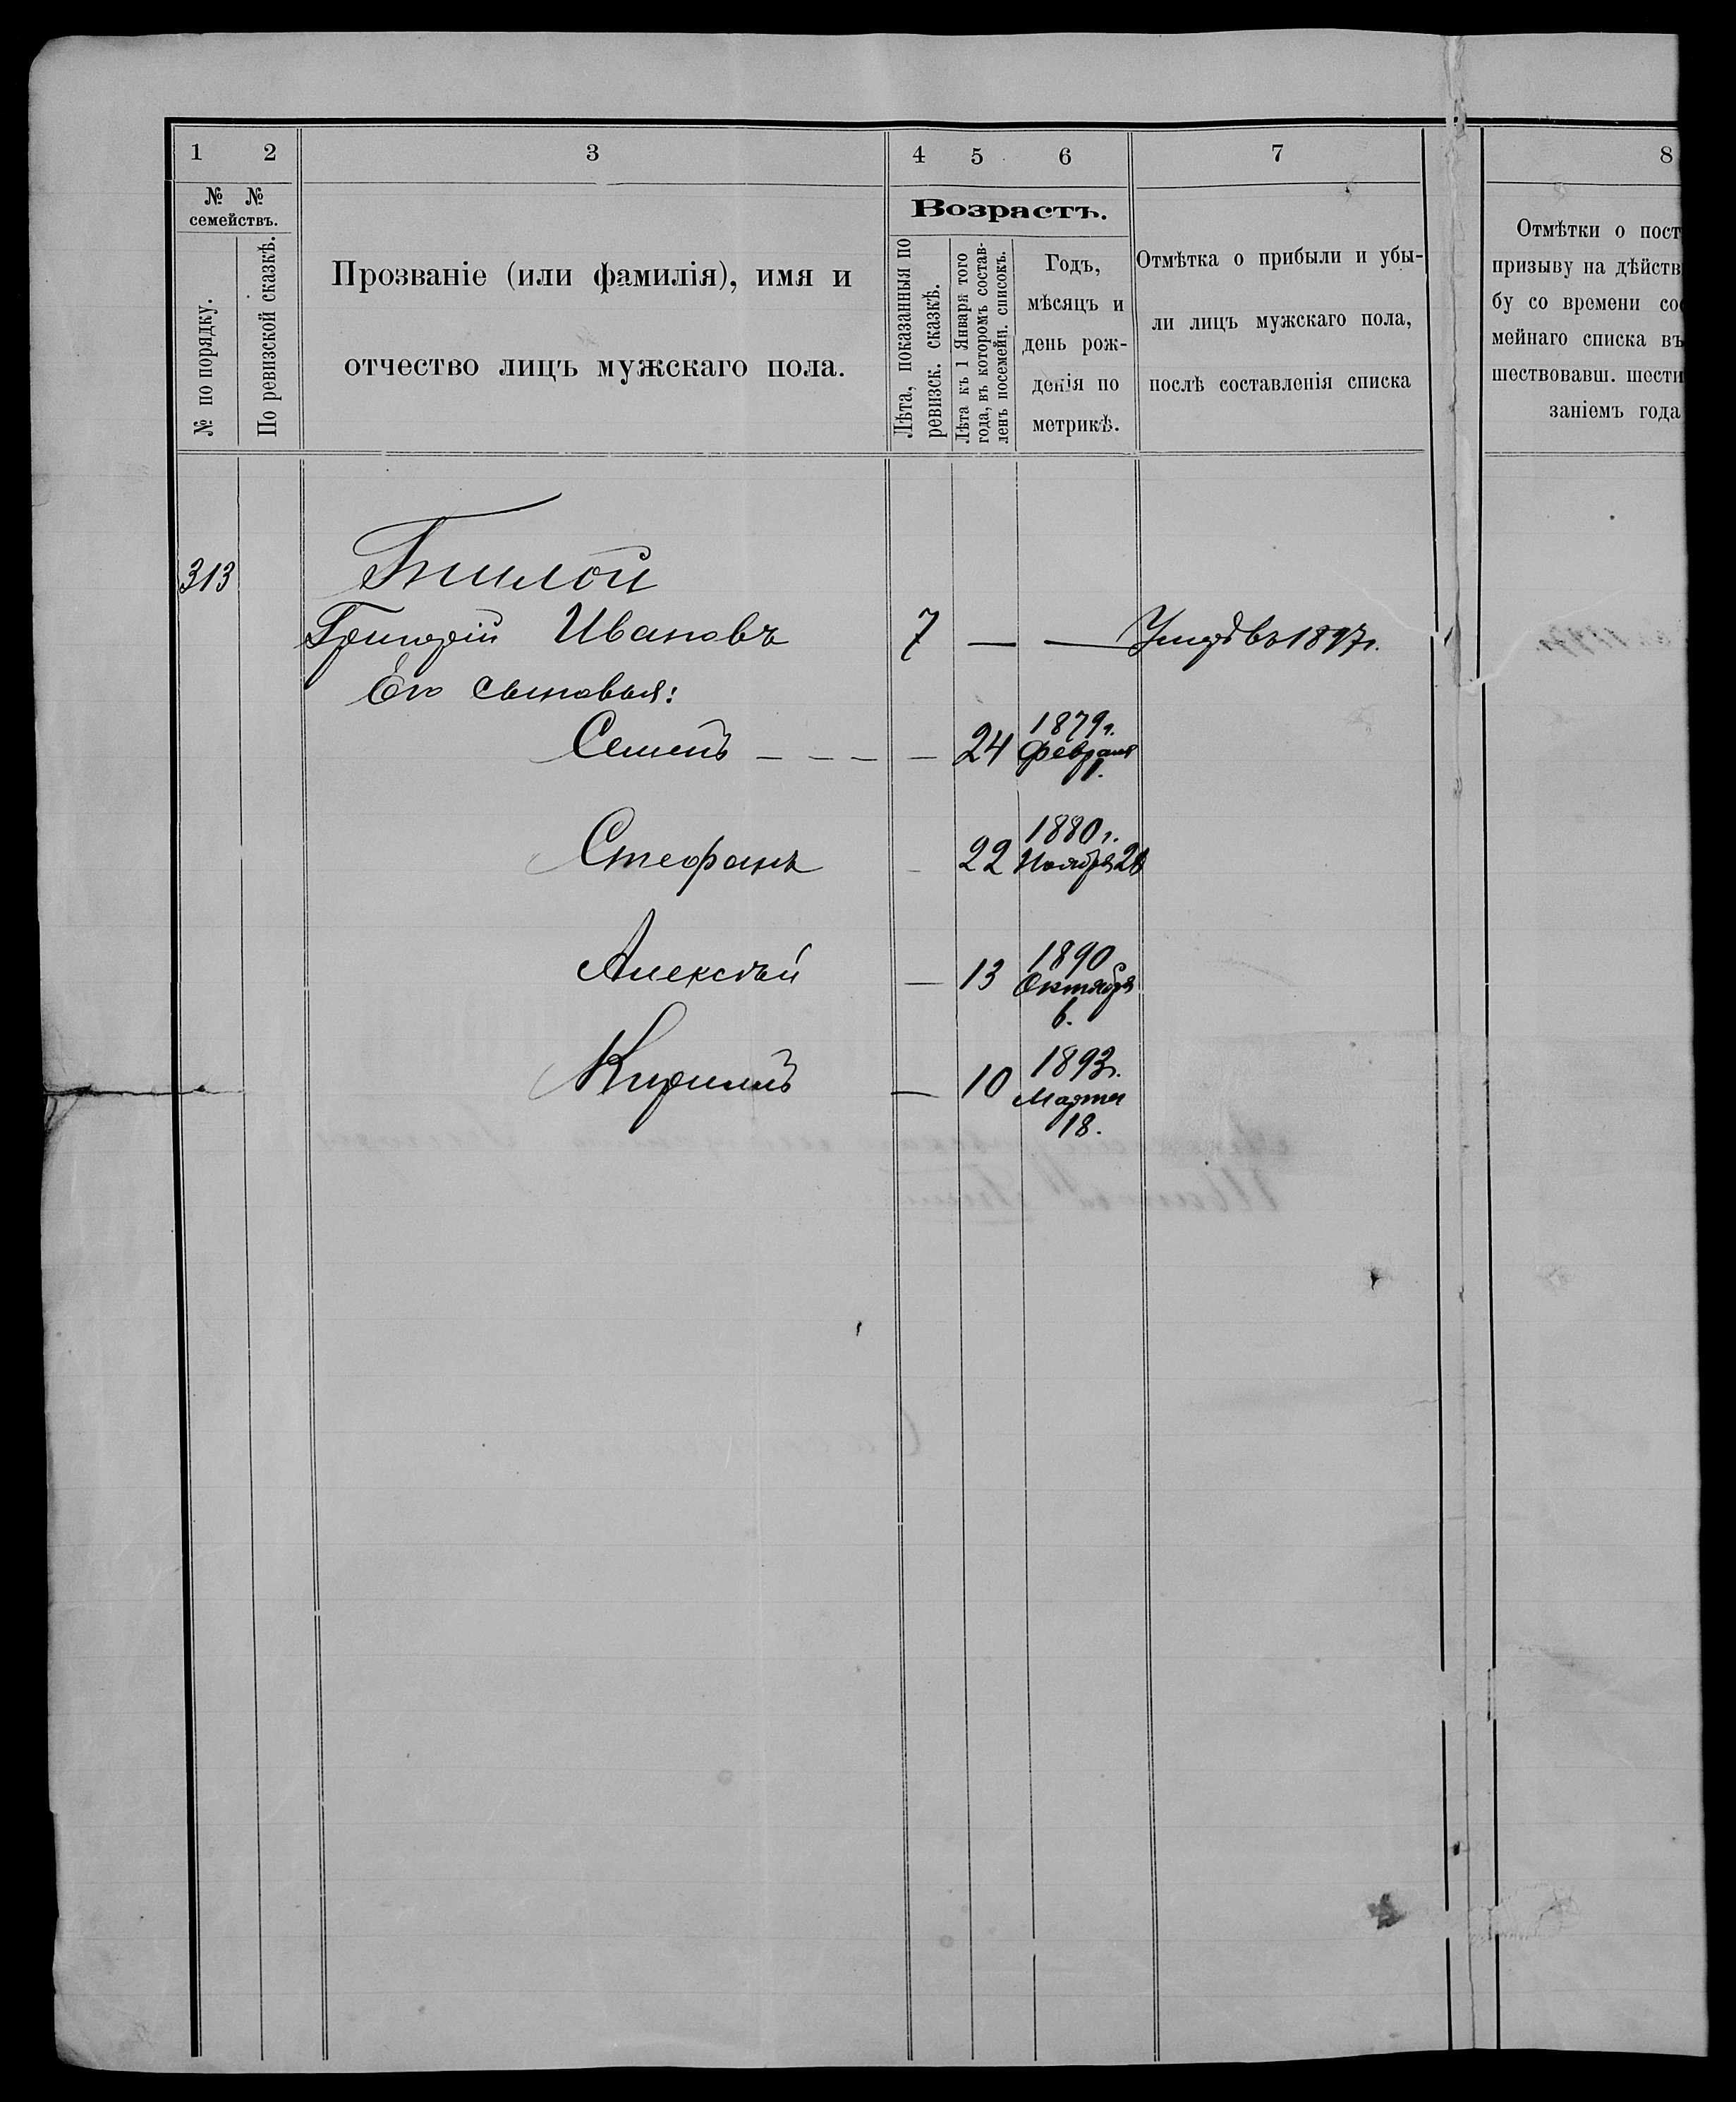 1 2 3 4 5 6 7 8
№ № семействъ.
№ по порядку.
По ревизской сказкѣ.
Прозваніе (или фамилія), имя и
отчество лицъ мужскаго пола.
Возрастъ.
Лѣта, показанныя по
ревизск. сказкѣ.
Лѣта къ 1 Января того
года, въ которомъ состав-
ленъ посемейн. списокъ.
Годъ,
мѣсяцъ и
день рож-
денія по
метрикѣ.
Отмѣтка о прибыли и убы-
ли лицъ мужскаго пола,
послѣ составленія списка
Отмѣтки о пост
призыву на дѣйств
бу со времени со
мейнаго списка въ
шествовавш. шести
заніемъ года
313 Билой
Григорій Ивановъ 7 — — Умеръ въ 1897 г.
Его сыновья:
Семенъ - - - — 24 1879 г.
Февраля
1.
Стефанъ - 22 1880 г.
Ноября 28
Алексѣй — 13 1890
Октября
6.
Кириллъ — 10 1893 г.
Марта
18.